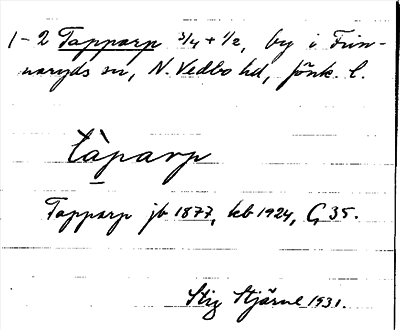 1-2 Tapparp 3/4 + 1/2, by i Frin-
naryds sn, N. Vedbo hd, Jönk. l.
tàparp
Tapparp jb 1877, kb 1924, G 35.
Stig Stjärne 1931.